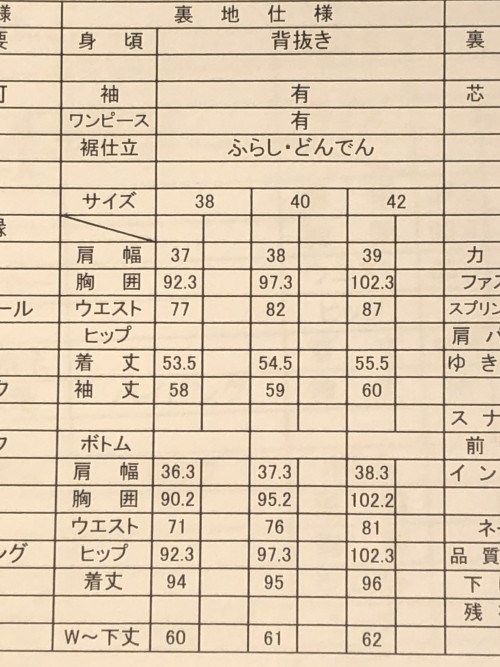 様 裏地仕様
要 身頃 背抜き 裏
袖 有 芯
ワンピース 有
裾仕立 ふらし・どんでん
サイズ 38 40 42
縁
肩幅 37 38 39 力
胸囲 92.3 97.3 102.3 ファス
ール ウエスト 77 82 87 スプリン
ヒップ 肩パ
着丈 53.5 54.5 55.5 ゆき
ク 袖丈 58 59 60
スナ
ク ボトム 前
肩幅 36.3 37.3 38.3 イン
胸囲 90.2 95.2 102.2
ウエスト 71 76 81 ネー
ング ヒップ 92.3 97.3 102.3 品質
着丈 94 95 96 下
残
W〜下丈 60 61 62